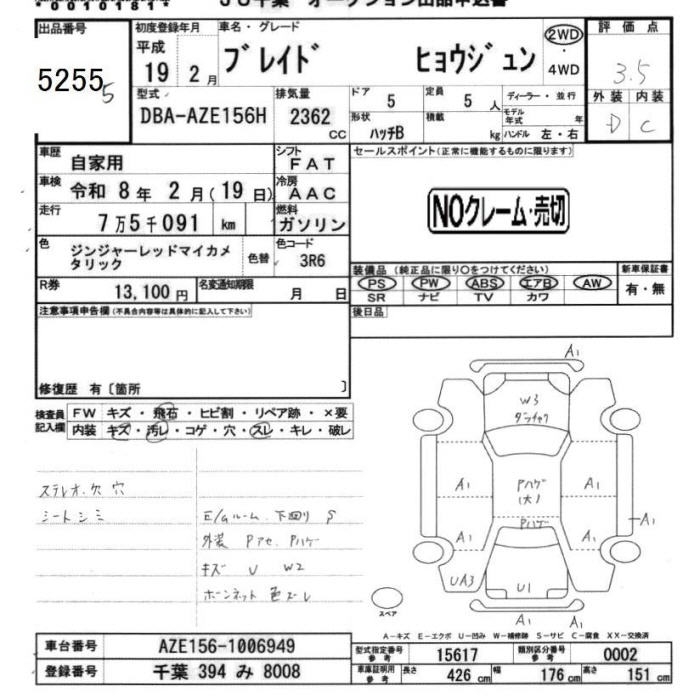 00101811
JU千葉 オークション出品申込書
出品番号 初度登録年月 車名・グレード 2WD 評価点
平成 19 2月 ブレイド ヒョウジュン ・ 4WD 3.5
5255 5
型式 DBA-AZE156H 排気量 2362 CC ドア 5 定員 5 人 ディーラー・並行 外装 内装
形状 ハッチB 積載 kg モデル年式 年 ハンドル 左・右 D C
車歴 自家用 シフト FAT セールスポイント(正常に機能するものに限ります)
車検 令和 8年 2月(19日) 冷房 AAC
NOクレーム・売切
走行 7万5千091 km 燃料 ガソリン
色 ジンジャーレッドマイカメタリック 色替 色コード 3R6
装備品 (純正品に限り○をつけてください) 新車保証書
PS PW ABS エアB AW 有・無
SR ナビ TV カワ
R券 13,100円 名変通知期限 月 日
注意事項申告欄(不具合内容等は具体的に記入して下さい) 後日品
修復歴 有〔箇所 〕
検査員記入欄 FW キズ・飛石・ヒビ割・リペア跡・×要
内装 キズ・汚レ・コゲ・穴・スレ・キレ・破レ
ステレオ.欠 穴
シートシミ E/Gルーム.下回り S
外装 Pアセ.Pハゲ
キズ U W2
ボーンネット 色ズレ
A1
W3
A1 Pハゲ(大) A1
Pハゲ
A1 A1 A1
UA3 U1
A1 A1
スペア
A-キズ E-エクボ U-凹み W-補修跡 S-サビ C-腐食 XX-交換済
車台番号 AZE156-1006949 型式指定番号 参考 15617 類別区分番号 参考 0002
登録番号 千葉 394 み 8008 車庫証明用 参考 長さ 426 cm 幅 176 cm 高さ 151 cm